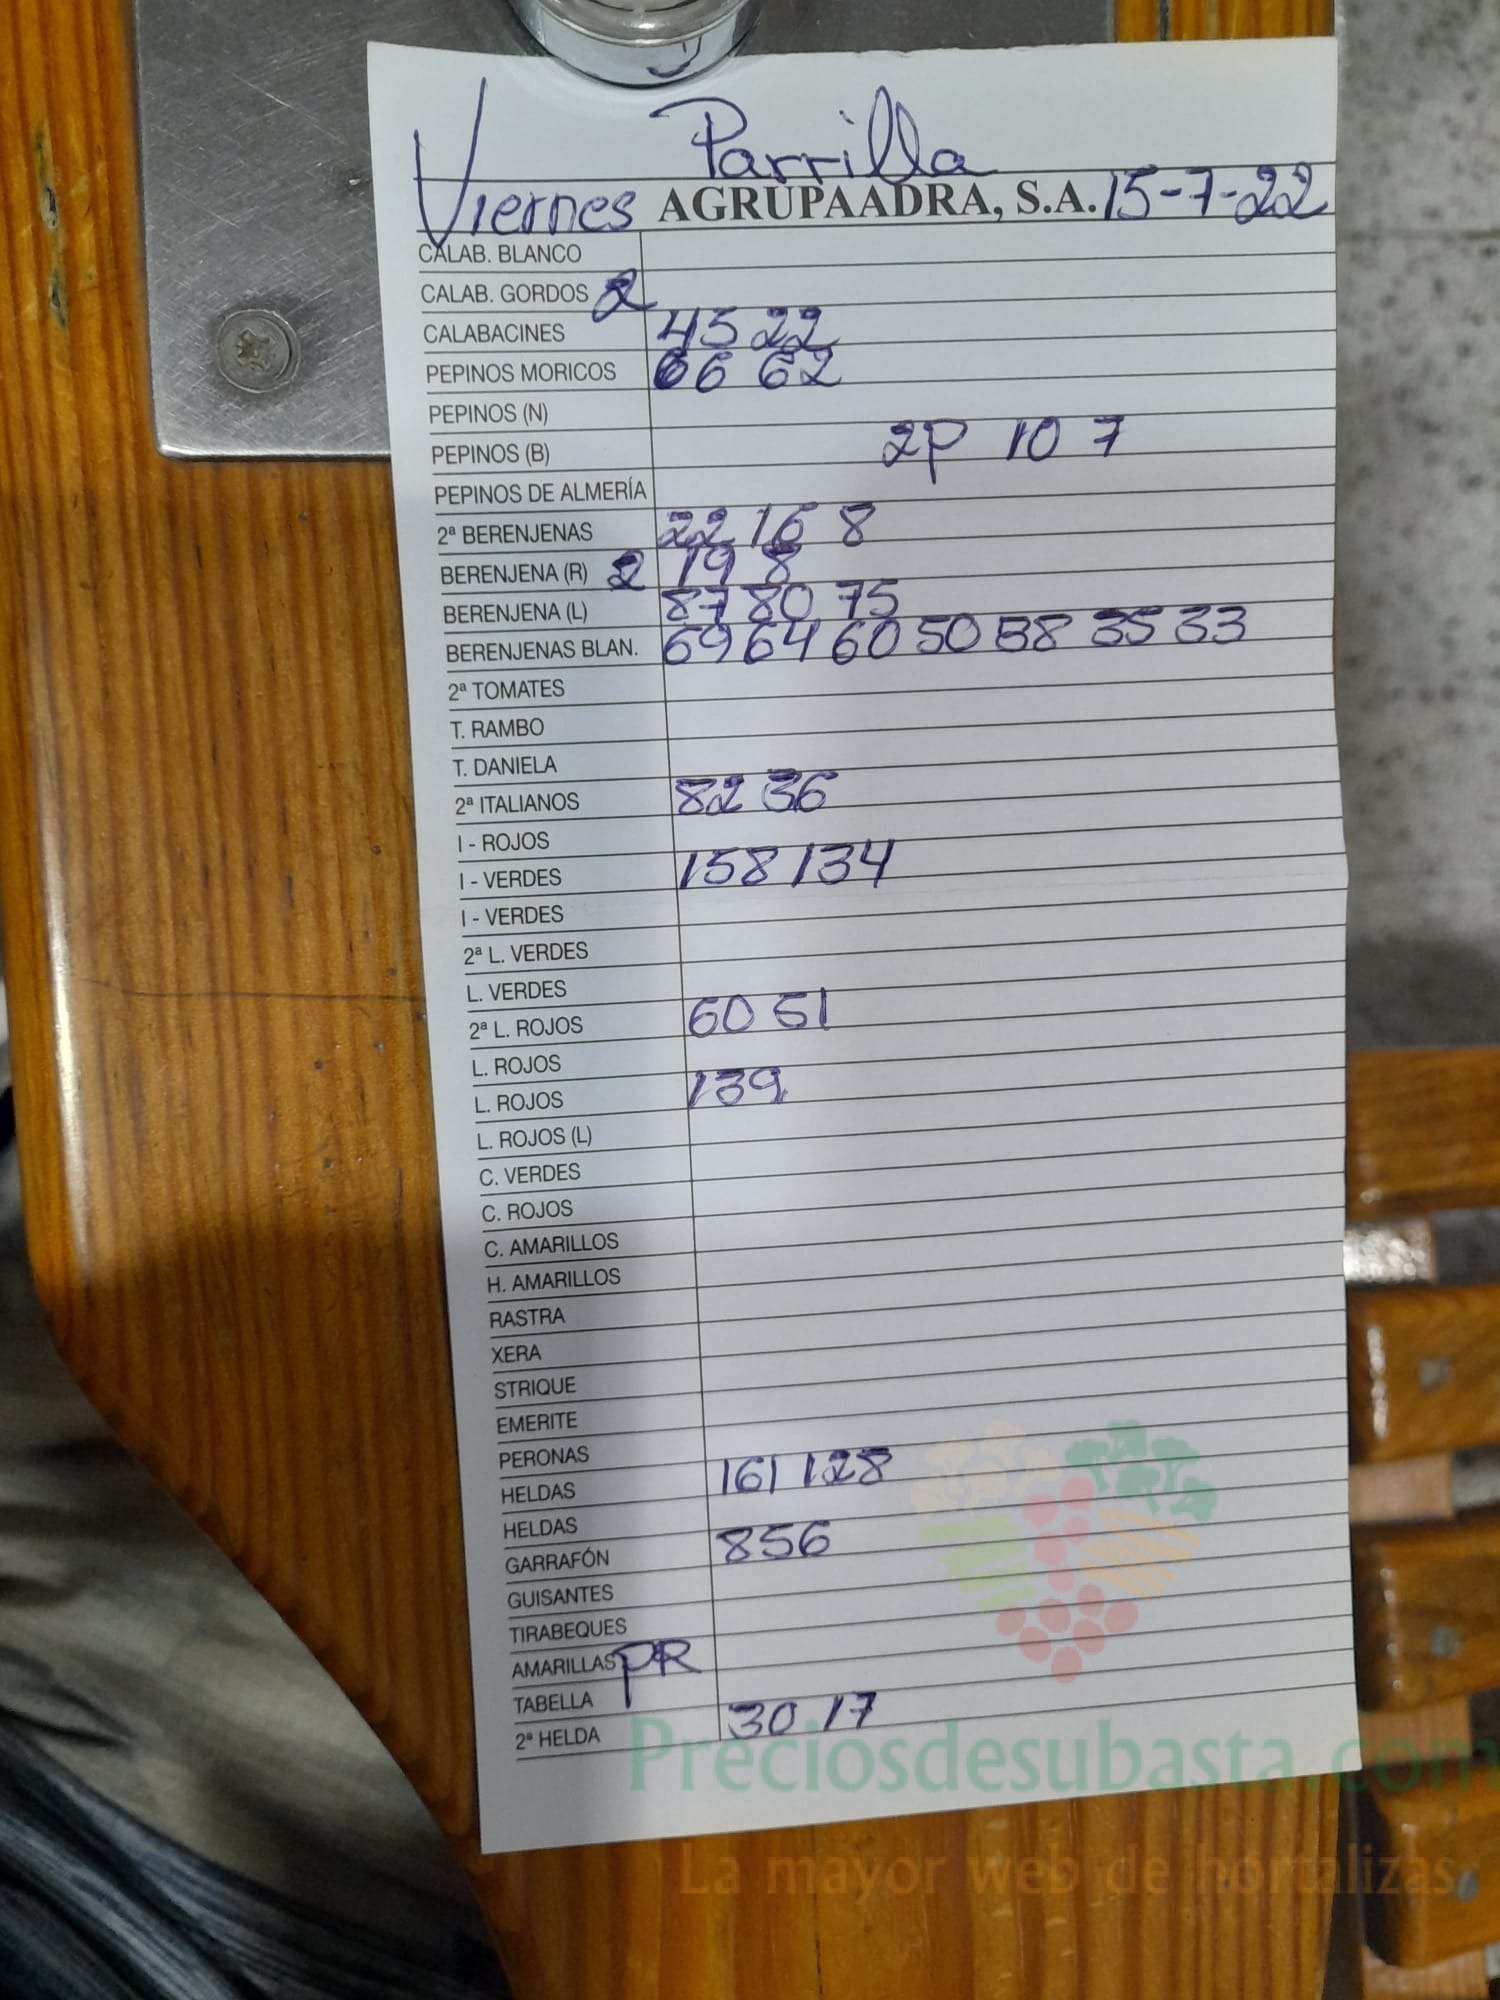 Parrilla
Viernes AGRUPAADRA, S.A. 15-7-22
CALAB. BLANCO
CALAB. GORDOS 2
CALABACINES 45 22
PEPINOS MORICOS 66 62
PEPINOS (N)
PEPINOS (B) 2P 10 7
PEPINOS DE ALMERÍA
2ª BERENJENAS 22 16 8
BERENJENA (R) 2 19 8
BERENJENA (L) 87 80 75
BERENJENAS BLAN. 69 64 60 50 38 35 33
2ª TOMATES
T. RAMBO
T. DANIELA
2ª ITALIANOS 82 36
I - ROJOS
I - VERDES 158 134
I - VERDES
2ª L. VERDES
L. VERDES
2ª L. ROJOS 60 51
L. ROJOS
L. ROJOS 139
L. ROJOS (L)
C. VERDES
C. ROJOS
C. AMARILLOS
H. AMARILLOS
RASTRA
XERA
STRIQUE
EMERITE
PERONAS
HELDAS 161 128
HELDAS
GARRAFÓN 856
GUISANTES
TIRABEQUES
AMARILLAS PR
TABELLA
2ª HELDA 30 17
Preciosdesubasta.com
La mayor web de hortalizas